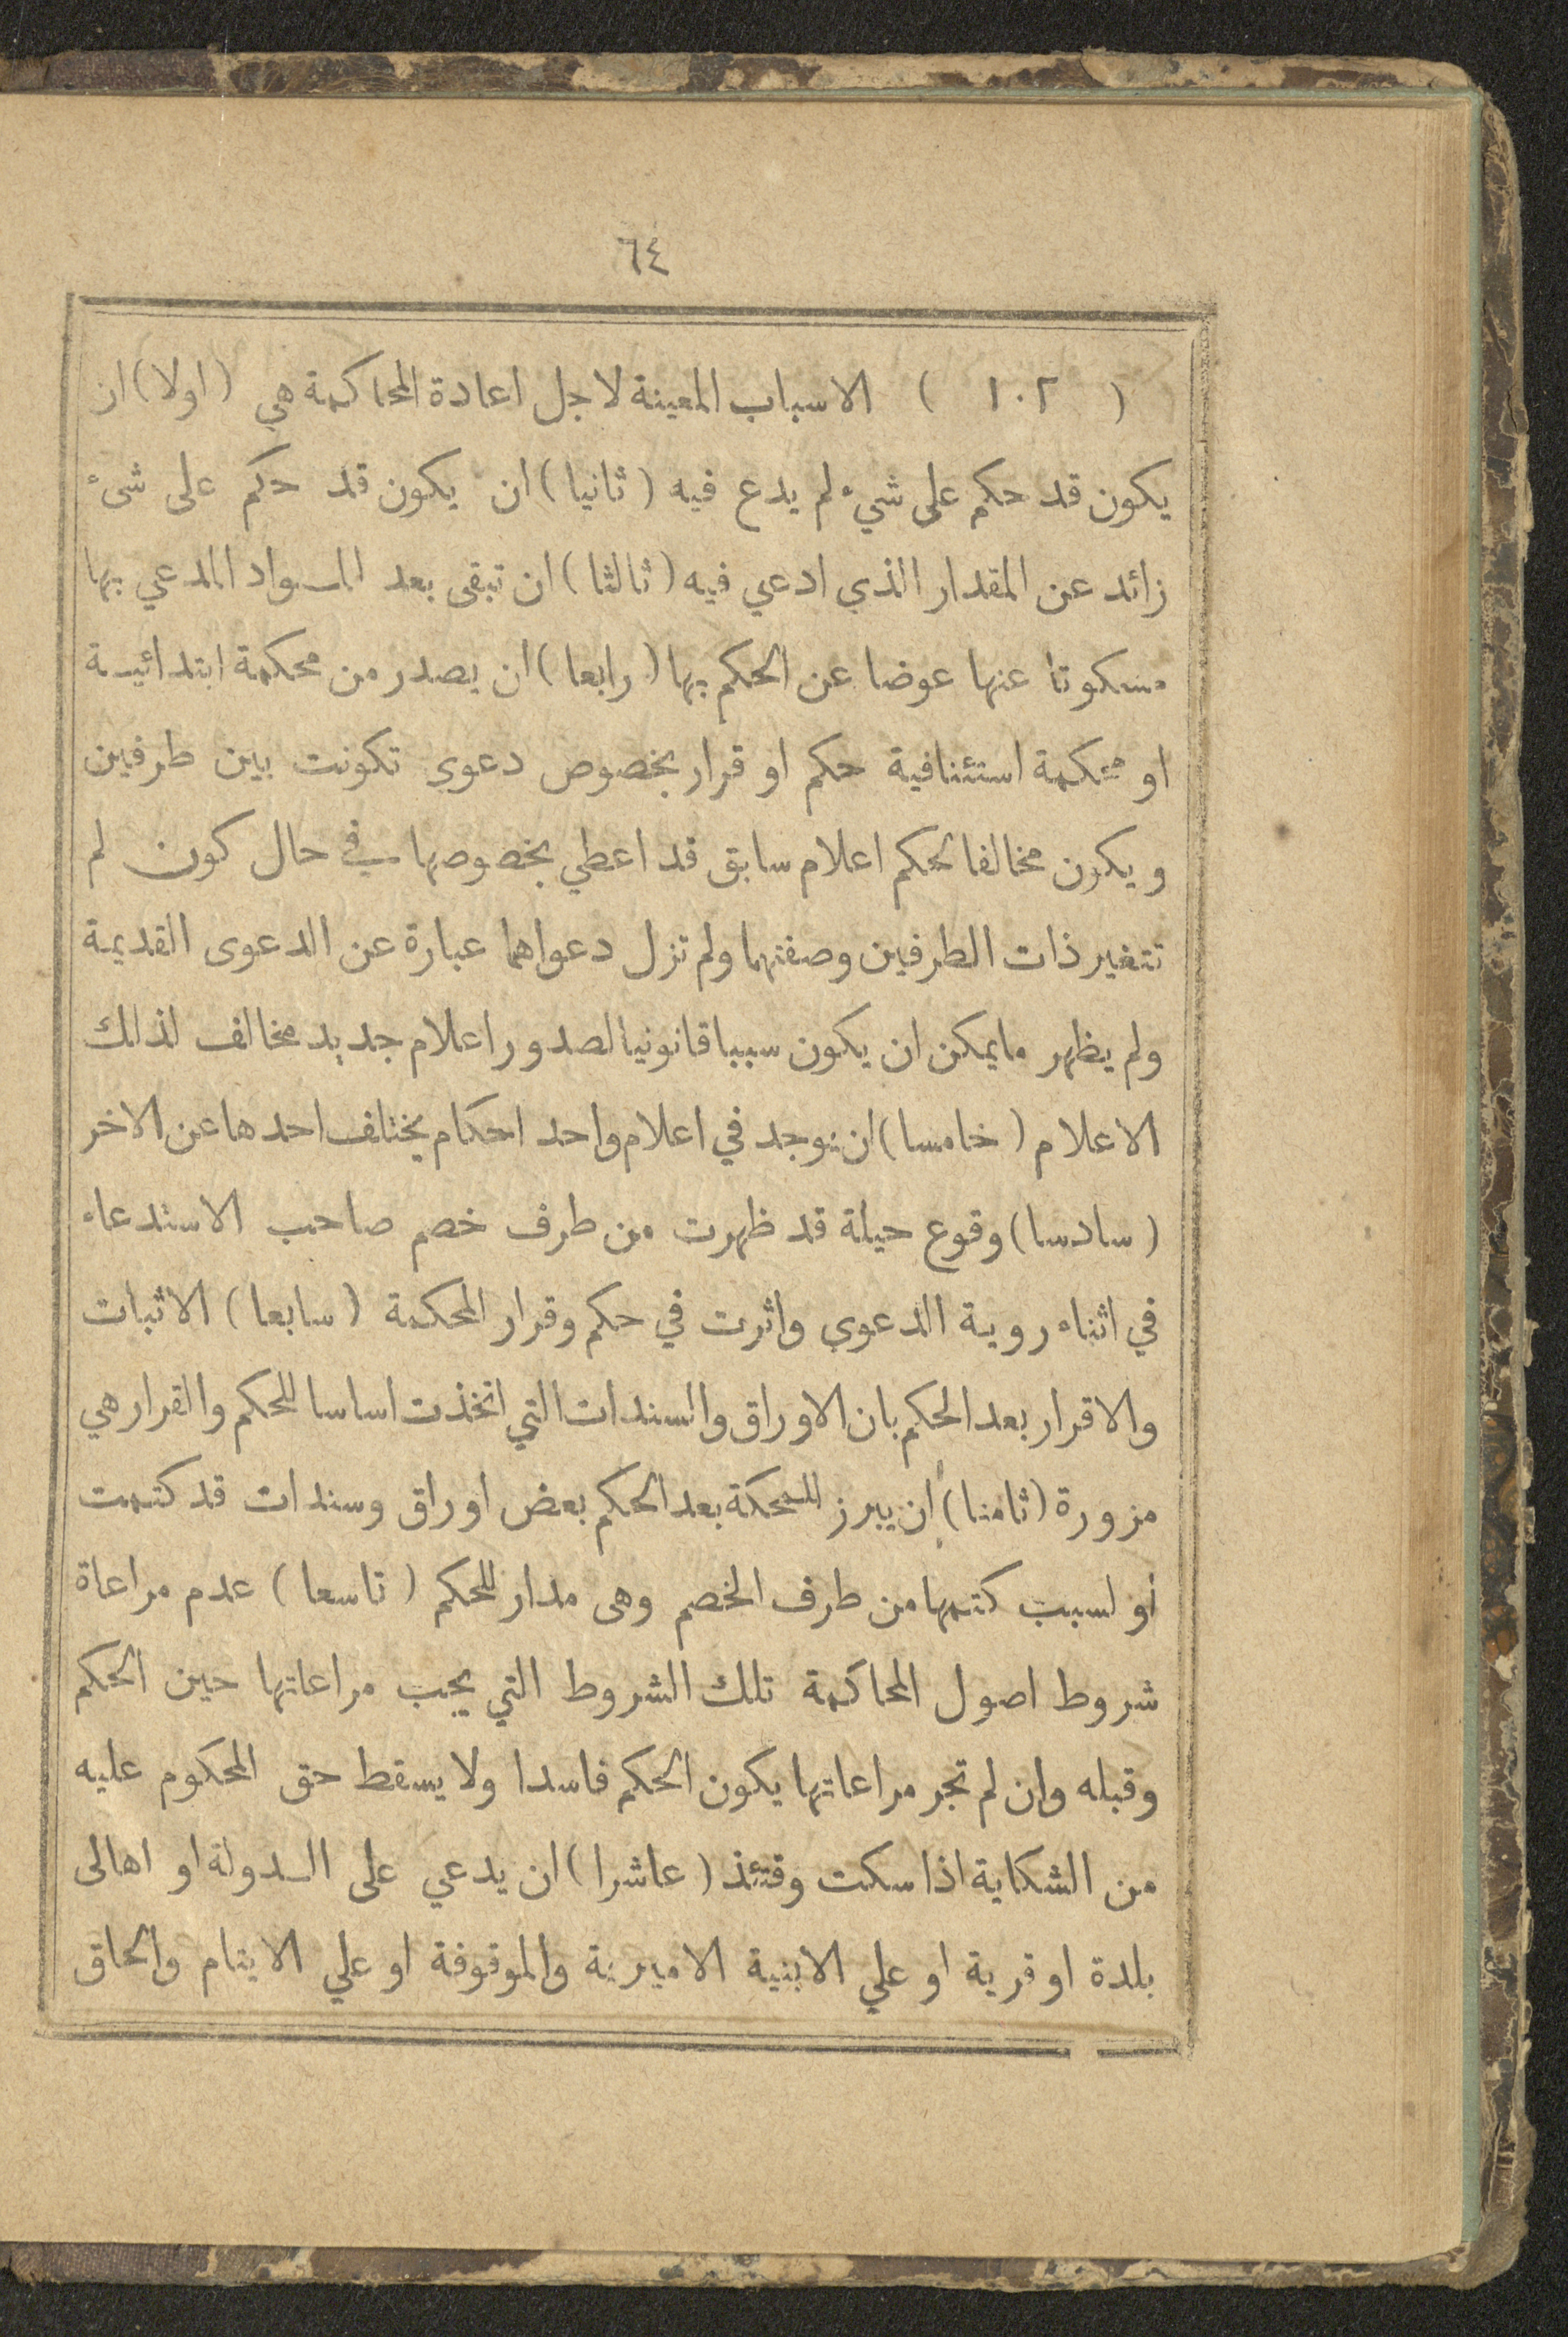 ٦٤
( ١٠٢ ) الاسباب المعينة لاجل اعادة المحاكمة هي (اولا) ان
يكون قد حكم على شيء لم يدع فيه (ثانيا) ان يكون قد حكم على شىء
زائد عن المقدار الذي ادعي فيه (ثالثا) ان تبقى بعد المواد المدعي بها
مسكوتا عنها عوضا عن الحكم بها (رابعا) ان يصدر من محكمة ابتدائية
او محكمة استئنافية حكم او قرار بخصوص دعوى تكونت بين طرفين
ويكون مخالفا لحكم اعلام سابق قد اعطي بخصوصها في حال كون لم
تتغير ذات الطرفين وصفتهما ولم تزل دعواهما عبارة عن الدعوى القديمة
ولم يظهر مايمكن ان يكون سببا قانونيا لصدور اعلام جديد مخالف لذلك
الاعلام (خامسا) ان يوجد في اعلام واحد احكام يختلف احدها عن الاخر
(سادسا) وقوع حيلة قد ظهرت من طرف خصم صاحب الاستدعاء
في اثناء روية الدعوى واثرت في حكم وقرار المحكمة (سابعا) الاثبات
والاقرار بعد الحكم بان الاوراق والسندات التي اتخذت اساسا للحكم والقرار هي
مزورة (ثامنا) ان يبرز للمحكمة بعد الحكم بعض اوراق وسندات قد كتمت
أو لسبب كتمها من طرف الخصم وهى مدار للحكم (تاسعا) عدم مراعاة
شروط اصول المحاكمة تلك الشروط التي يجب مراعاتها حين الحكم
وقبله وان لم تجر مراعاتها يكون الحكم فاسدا ولا يسقط حق المحكوم عليه
من الشكاية اذا سكت وقتئذ (عاشرا) ان يدعي على الدولة او اهالى
بلدة او قرية او علي الابنية الاميرية والموقوفة او علي الايتام والحاق